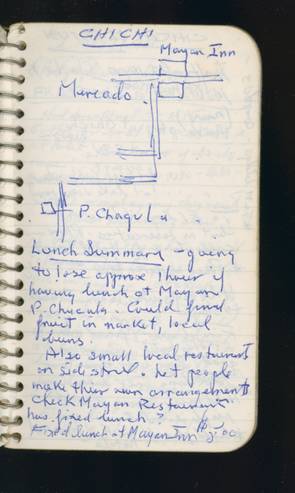 CHI CHI
Mayan Inn
Mercado.
P. Chaqula
Lunch Summary - going
to lose approx 1 hour if
having lunch at Mayan
P. Chucula. Could find
fruit in market, local
buns.
Also small local restaurant
on side street. Let people
make their own arrangements
Check Mayan Restaurant
has fixed lunch?
Fixed lunch at Mayan Inn